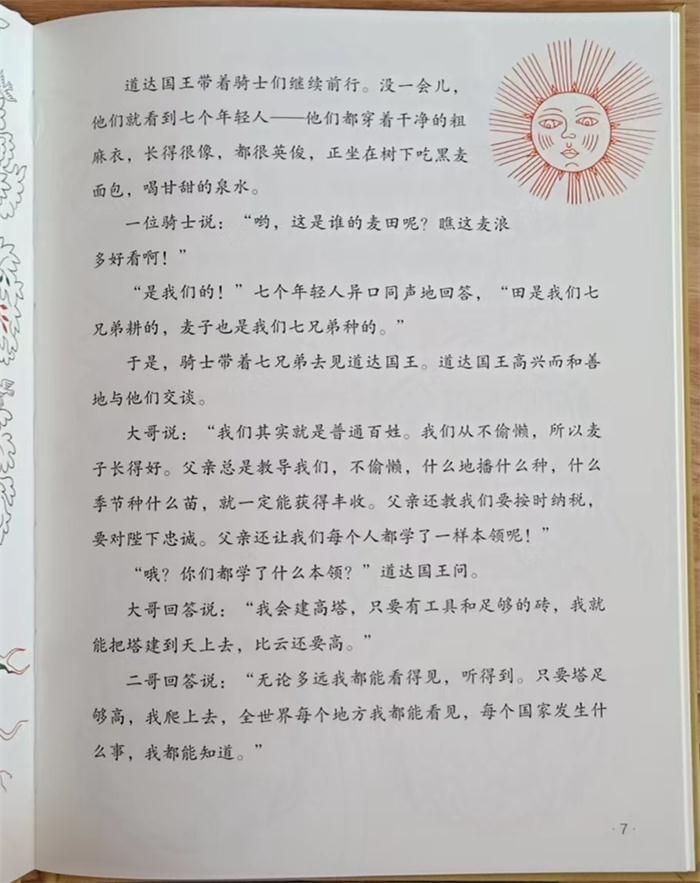 道达国王带着骑士们继续前行。没一会儿，
他们就看到七个年轻人——他们都穿着干净的粗
麻衣，长得很像，都很英俊，正坐在树下吃黑麦
面包，喝甘甜的泉水。
一位骑士说：“哟，这是谁的麦田呢？瞧这麦浪
多好看啊！”
“是我们的！”七个年轻人异口同声地回答，“田是我们七
兄弟耕的，麦子也是我们七兄弟种的。”
于是，骑士带着七兄弟去见道达国王。道达国王高兴而和善
地与他们交谈。
大哥说：“我们其实就是普通百姓。我们从不偷懒，所以麦
子长得好。父亲总是教导我们，不偷懒，什么地播什么种，什么
季节种什么苗，就一定能获得丰收。父亲还教我们要按时纳税，
要对陛下忠诚。父亲还让我们每个人都学了一样本领呢！”
“哦？你们都学了什么本领？”道达国王问。
大哥回答说：“我会建高塔，只要有工具和足够的砖，我就
能把塔建到天上去，比云还要高。”
二哥回答说：“无论多远我都能看得见，听得到。只要塔足
够高，我爬上去，全世界每个地方我都能看见，每个国家发生什
么事，我都能知道。”
·7·